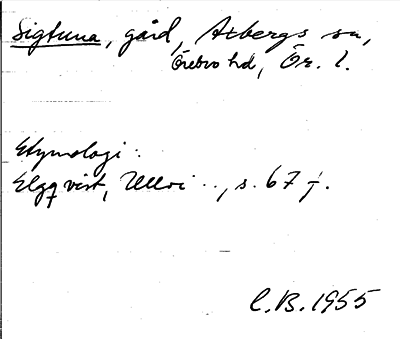 Sigtuna, gård, Axbergs sn,
Örebro hd, Ör. l.
Etymologi:
Elgqvist, Ullvi .., s. 67 f.
C.B. 1955